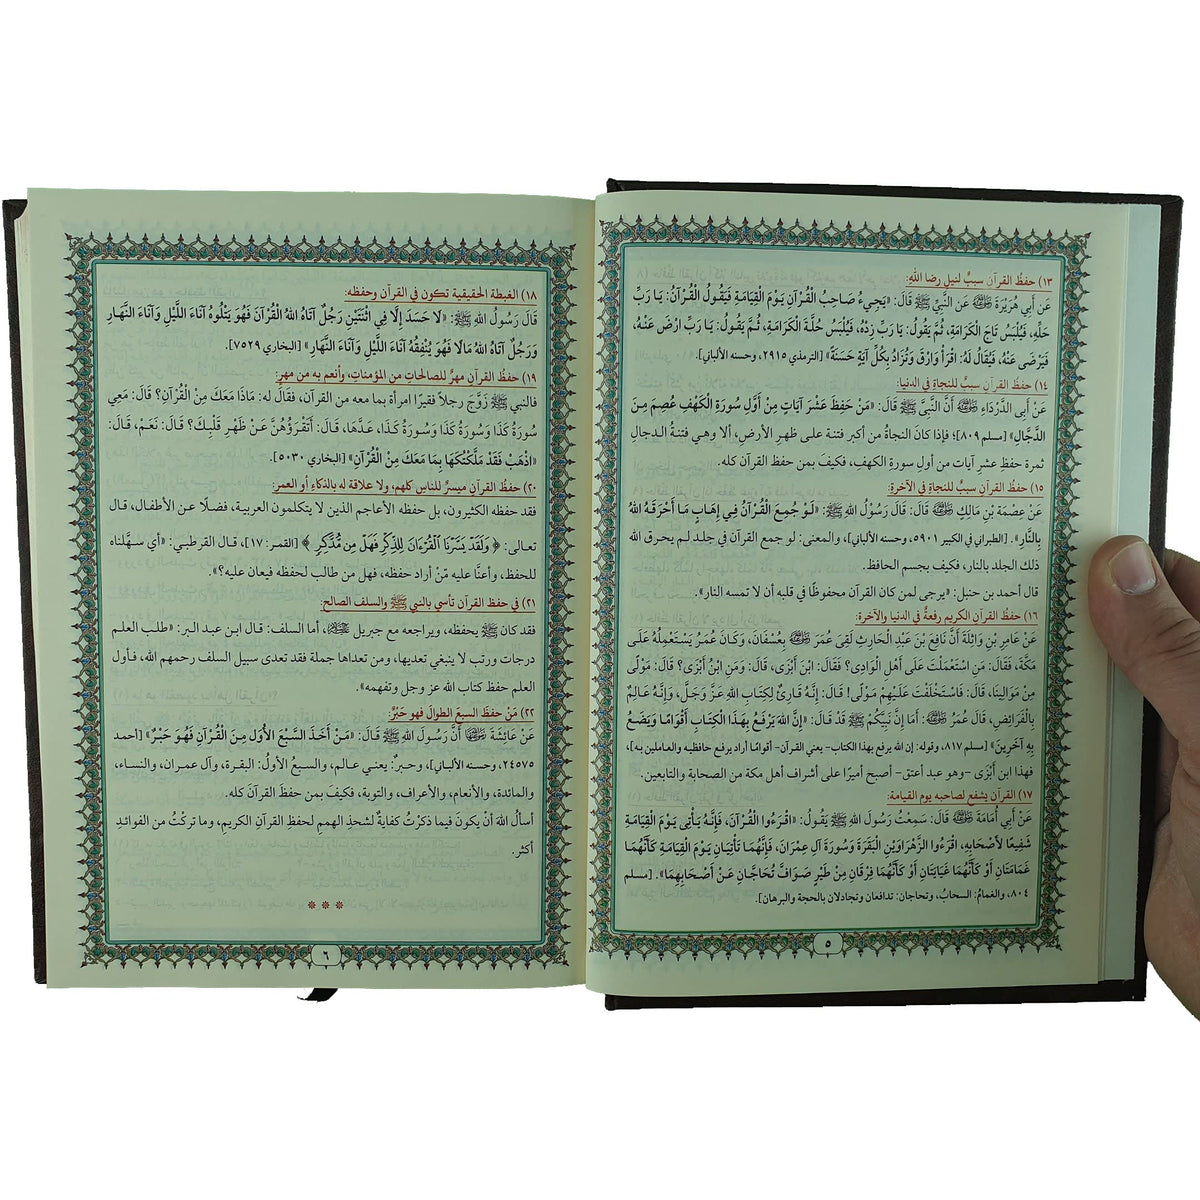 ١٣) حفظُ القرآنِ سببٌ لنيلِ رضا اللَّهِ:
عَن أبِي هُرَيْرَةَ ﵁ عَنِ النَّبِيِّ ﷺ قَالَ: «يَجِيءُ صَاحِبُ الْقُرْآنِ يَوْمَ الْقِيَامَةِ فَيَقُولُ الْقُرْآنُ: يَا رَبِّ
حَلِّهِ، فَيُلْبَسُ تَاجَ الْكَرَامَةِ، ثُمَّ يَقُولُ: يَا رَبِّ زِدْهُ، فَيُلْبَسُ حُلَّةَ الْكَرَامَةِ، ثُمَّ يَقُولُ: يَا رَبِّ ارْضَ عَنْهُ،
فَيَرْضَى عَنْهُ، فَيُقَالُ لَهُ: اقْرَأْ وَارْقَ وَتُزَادُ بِكُلِّ آيَةٍ حَسَنَةً» [الترمذي ٢٩١٥، وحسنه الألباني].
١٤) حفظُ القرآنِ سببٌ للنجاةِ في الدنيا:
عَنْ أَبِي الدَّرْدَاءِ ﵁ أَنَّ النَّبِيَّ ﷺ قَالَ: «مَنْ حَفِظَ عَشْرَ آيَاتٍ مِنْ أَوَّلِ سُورَةِ الْكَهْفِ عُصِمَ مِنَ
الدَّجَّالِ» [مسلم ٨٠٩]؛ فإذا كانَ النجاةُ من أكبر فتنة على ظهرِ الأرضِ، ألا وهي فتنةُ الدجالِ
ثمرة حفظ عشرِ آيات من أولِ سورةِ الكهفِ، فكيفَ بمن حفظ القرآن كله.
١٥) حفظُ القرآنِ سببٌ للنجاةِ في الآخرةِ:
عَنْ عِصْمَةَ بْنِ مَالِكٍ ﵁ قَالَ: قَالَ رَسُولُ اللهِ ﷺ: «لَوْ جُمِعَ الْقُرْآنُ فِي إِهَابٍ مَا أَحْرَقَهُ اللهُ
بِالنَّارِ». [الطبراني في الكبير ٥٩٠١، وحسنه الألباني]، والمعنى: لو جمع القرآن في جلد لم يحرق الله
ذلك الجلد بالنار، فكيف بجسم الحافظ.
قال أحمد بن حنبل: "يرجى لمن كان القرآن محفوظًا في قلبه أن لا تمسه النار".
١٦) حفظُ القرآنِ الكريم رفعةٌ في الدنيا والآخرة:
عَنْ عَامِرِ بْنِ وَاثِلَةَ أَنَّ نَافِعَ بْنَ عَبْدِ الْحَارِثِ لَقِيَ عُمَرَ ﵁ بِعُسْفَانَ، وَكَانَ عُمَرُ يَسْتَعْمِلُهُ عَلَى
مَكَّةَ، فَقَالَ: مَنِ اسْتَعْمَلْتَ عَلَى أَهْلِ الْوَادِي؟ فَقَالَ: ابْنَ أَبْزَى، قَالَ: وَمَنِ ابْنُ أَبْزَى؟ قَالَ: مَوْلًى
مِنْ مَوَالِينَا، قَالَ: فَاسْتَخْلَفْتَ عَلَيْهِمْ مَوْلًى! قَالَ: إِنَّهُ قَارِئٌ لِكِتَابِ اللهِ عَزَّ وَجَلَّ، وَإِنَّهُ عَالِمٌ
بِالْفَرَائِضِ، قَالَ عُمَرُ ﵁: أَمَا إِنَّ نَبِيَّكُمْ ﷺ قَدْ قَالَ: «إِنَّ اللهَ يَرْفَعُ بِهَذَا الْكِتَابِ أَقْوَامًا وَيَضَعُ
بِهِ آخَرِينَ» [مسلم ٨١٧، وقوله: إن الله يرفع بهذا الكتاب- يعني القرآن- أقوامًا أراد يرفع حافظيه والعاملين به]،
فهذا ابن أَبْزَى -وهو عبد أعتق- أصبح أميرًا على أشراف أهل مكة من الصحابة والتابعين.
١٧) القرآن يشفع لصاحبه يوم القيامة:
عَنْ أَبِي أُمَامَةَ ﵁ قَالَ: سَمِعْتُ رَسُولَ اللهِ ﷺ يَقُولُ: «اقْرَءُوا الْقُرْآنَ، فَإِنَّهُ يَأْتِي يَوْمَ الْقِيَامَةِ
شَفِيعًا لِأَصْحَابِهِ، اقْرَءُوا الزَّهْرَاوَيْنِ الْبَقَرَةَ وَسُورَةَ آلِ عِمْرَانَ، فَإِنَّهُمَا تَأْتِيَانِ يَوْمَ الْقِيَامَةِ كَأَنَّهُمَا
غَمَامَتَانِ أَوْ كَأَنَّهُمَا غَيَايَتَانِ أَوْ كَأَنَّهُمَا فِرْقَانِ مِنْ طَيْرٍ صَوَافَّ تُحَاجَّانِ عَنْ أَصْحَابِهِمَا». [مسلم
٨٠٤، والغمامُ: السحابُ، وتحاجان: تدافعان وتجادلان بالحجة والبرهان].
٥
١٨) الغبطة الحقيقية تكون في القرآن وحفظه:
قَالَ رَسُولُ اللهِ ﷺ: «لَا حَسَدَ إِلَّا فِي اثْنَتَيْنِ رَجُلٌ آتَاهُ اللهُ الْقُرْآنَ فَهُوَ يَتْلُوهُ آنَاءَ اللَّيْلِ وَآنَاءَ النَّهَارِ
وَرَجُلٌ آتَاهُ اللهُ مَالًا فَهُوَ يُنْفِقُهُ آنَاءَ اللَّيْلِ وَآنَاءَ النَّهَارِ» [البخاري ٧٥٢٩].
١٩) حفظُ القرآنِ مهرٌ للصالحاتِ من المؤمناتِ، وأنعم به من مهرٍ:
فالنبي ﷺ زَوَّجَ رجلاً فقيرًا امرأة بما معه من القرآن، فقال له: مَاذَا مَعَكَ مِنْ الْقُرْآنِ؟ قَالَ: مَعِي
سُورَةُ كَذَا وَسُورَةُ كَذَا وَسُورَةُ كَذَا، عَدَّهَا، قَالَ: أَتَقْرَؤُهُنَّ عَنْ ظَهْرِ قَلْبِكَ؟ قَالَ: نَعَمْ، قَالَ:
«اذْهَبْ فَقَدْ مَلَّكْتُكَهَا بِمَا مَعَكَ مِنْ الْقُرْآنِ» [البخاري ٥٠٣٠].
٢٠) حفظُ القرآنِ ميسرٌ للناسِ كلهم، ولا علاقة له بالذكاءِ أو العمرِ:
فقد حفظه الكثيرون، بل حفظه الأعاجم الذين لا يتكلمون العربية، فضلًا عن الأطفال، قال
تعالى: ﴿ وَلَقَدْ يَسَّرْنَا ٱلْقُرْءَانَ لِلذِّكْرِ فَهَلْ مِن مُّدَّكِرٍ ﴾ [القمر: ١٧]، قال القرطبي: "أي سهَّلناه
للحفظ، وأعنَّا عليه مَنْ أراد حفظه، فهل من طالب لحفظه فيعان عليه؟".
٢١) في حفظ القرآن تأسي بالنبي ﷺ والسلف الصالح:
فقد كانَ ﷺ يحفظه، ويراجعه مع جبريل ﵇، أما السلف: قال ابن عبد البر: "طلب العلم
درجات ورتب لا ينبغي تعديها، ومن تعداها جملة فقد تعدى سبيل السلف رحمهم الله، فأول
العلم حفظ كتاب الله عز وجل وتفهمه».
٢٢) مَنْ حفظَ السبعَ الطوالَ فهو حَبْرٌ:
عَنْ عَائِشَةَ ﵂ أَنَّ رَسُولَ اللهِ ﷺ قَالَ: «مَنْ أَخَذَ السَّبْعَ الأُوَلَ مِنَ الْقُرْآنِ فَهُوَ حَبْرٌ» [أحمد
٢٤٥٧٥، وحسنه الألباني]، وحبرٌ: يعني عالم، والسبع الأولُ: البقرة، وآل عمران، والنساء،
والمائدة، والأنعام، والأعراف، والتوبة، فكيفَ بمن حفظَ القرآنَ كله.
أسألُ اللهَ أنْ يكونَ فيما ذكرْتُ كفايةً لشحذِ الهممِ لحفظِ القرآنِ الكريم، وما تركتُ من الفوائدِ
أكثر.
***
٦